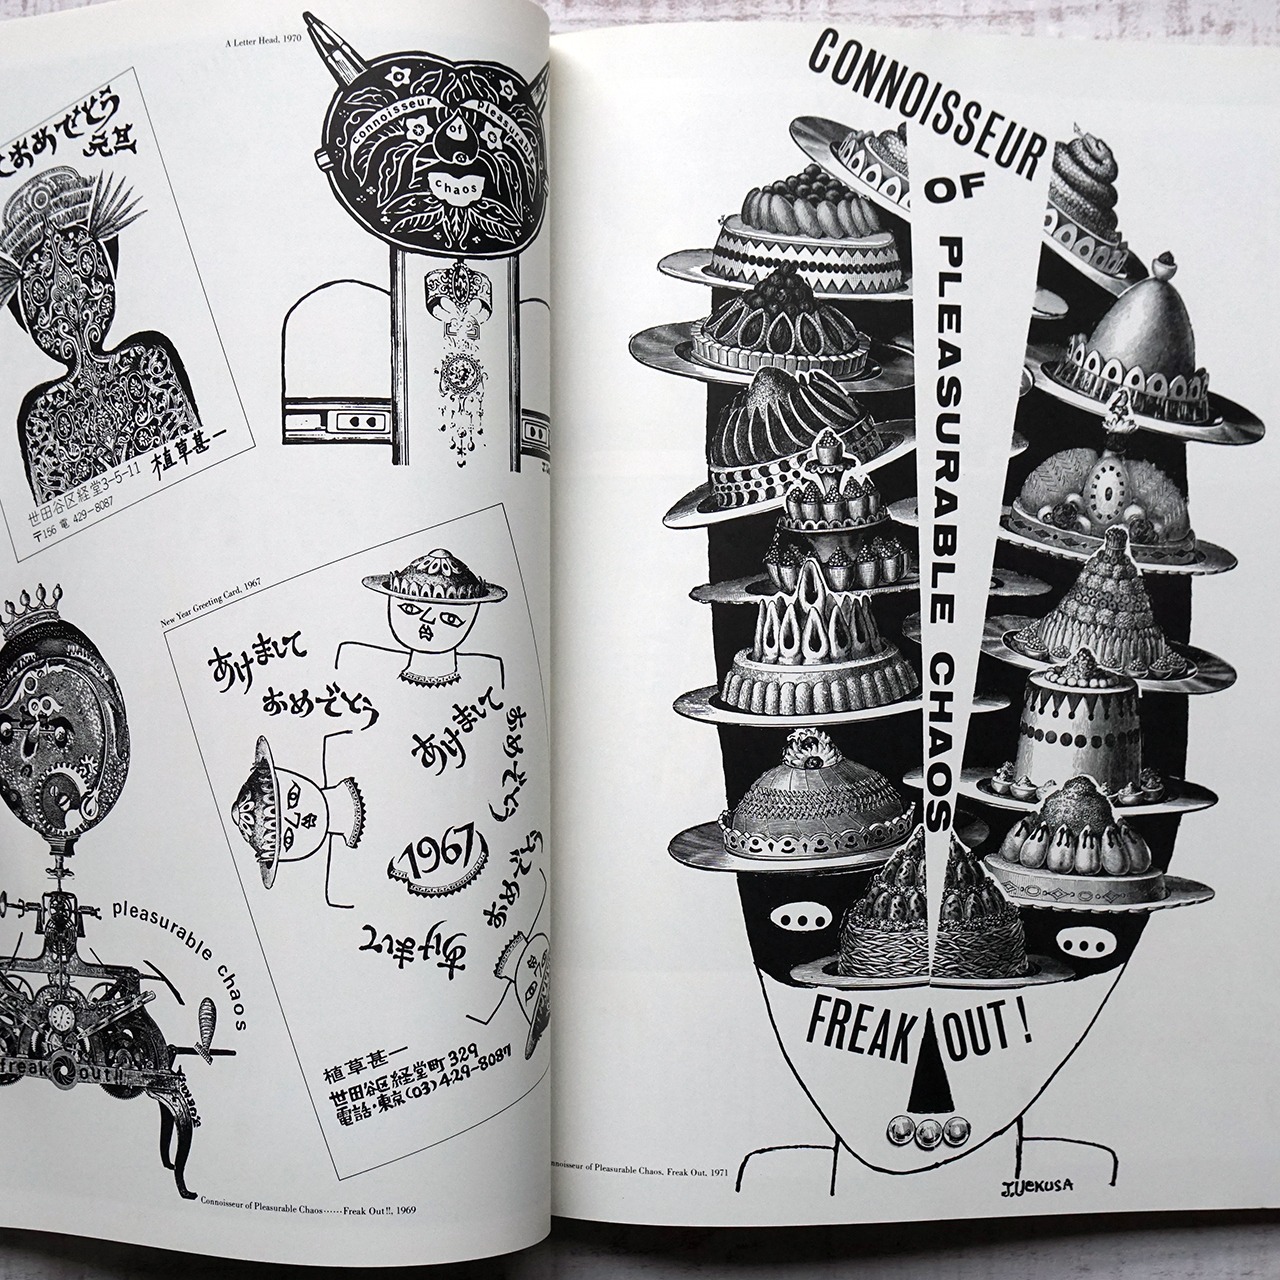 A Letter Head, 1970
おめでとう
植草甚一
世田谷区経堂3-5-11
〒156 電 429-8087
connoisseur
of
pleasurable
chaos
pleasurable chaos
freak out!!
Connoisseur of Pleasurable Chaos……Freak Out!!, 1969
New Year Greeting Card, 1967
あけまして
おめでとう
あけまして
おめでとう
1967
あけまして
植草甚一
世田谷区経堂町329
電話・東京(03)429-8087
CONNOISSEUR
OF
PLEASURABLE CHAOS
FREAK OUT!
J.UEKUSA
nnoisseur of Pleasurable Chaos, Freak Out, 1971